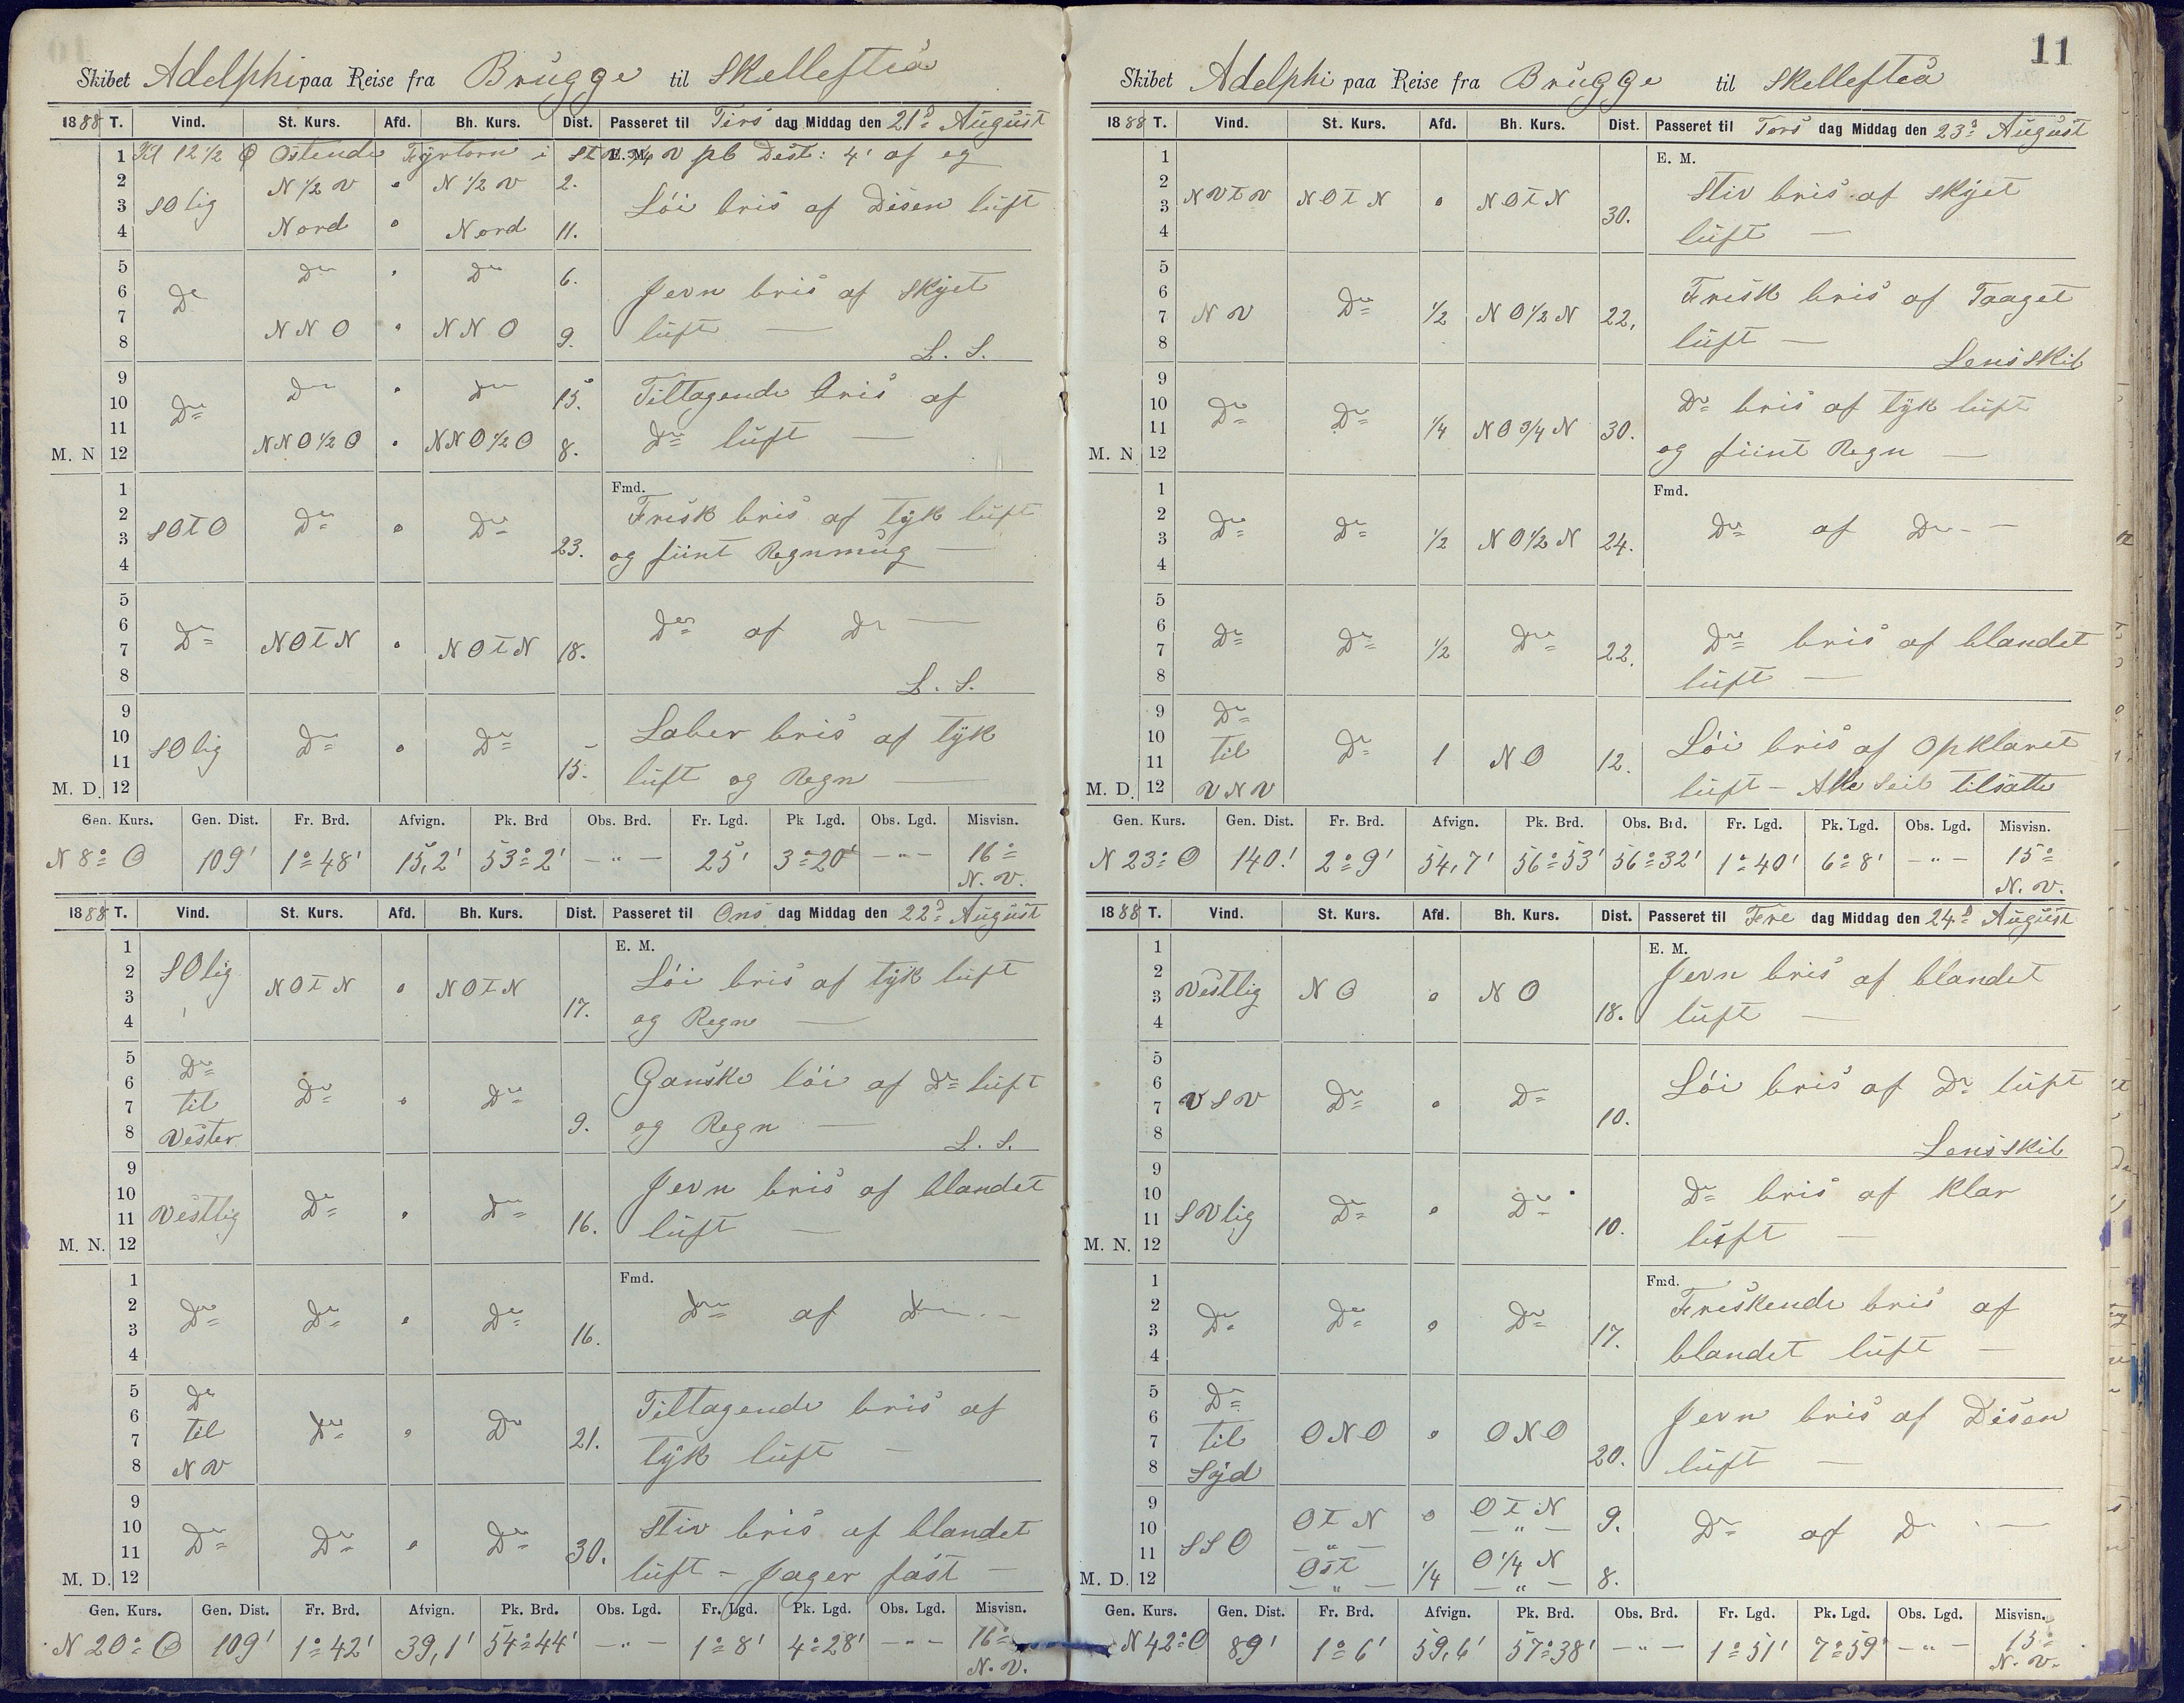 Skibet Adelphi paa Reise fra Brügge til Skellefteå
1888 T. Vind. St. Kurs. Afd. Bh. Kurs. Dist. Passeret til Tirs dag Middag den 21d August
1 Kl 12 1/2 Ostende Fyrtorn i St. V 3/4 V pb Dist: 4' af eg
E. M.
2 N 1/2 V " N 1/2 V 2.
3 SOlig Løi bris af Disen lüft
4 Nord " Nord 11.
5 Do " Do 6.
6 Do Jevn bris af Skyet
7 NNO " NNO 9. lüft —
8 L. S.
9 Do " Do 15. Tiltagende bris af
10 Do
11 NNO 1/2 O " NNO 1/2 O 8. Do lüft —
M. N 12
Fmd.
1 Frisk bris af tyk lüft
2 SOTO Do " Do
3 23. og fiint Regnmüg —
4
5
6 Do NOTN " NOTN 18. Do af Do —
7
8 L. S.
9 Laber bris af tyk
10 SOlig Do " Do
11 15. lüft og Regn —
M. D. 12
Gen. Kurs. Gen. Dist. Fr. Brd. Afvign. Pk. Brd Obs. Brd. Fr. Lgd. Pk Lgd. Obs. Lgd. Misvisn.
N 8° O 109' 1° 48' 15,2' 53° 2' — " — 25' 3° 20' — " — 16°
N. V.
1888 T. Vind. St. Kurs. Afd. Bh. Kurs. Dist. Passeret til Ons dag Middag den 22d August
E. M.
1
2 SOlig NOTN " NOTN Løi bris af tyk lüft
3 17.
4 og Regn —
5 Do
6 Do " Do Ganske løi af Do lüft
7 til 9.
8 Vester og Regn —
L. S.
9
10 Jevn bris af blandet
11 Vestlig Do " Do 16. lüft —
M. N. 12
Fmd.
1
2 Do Do " Do Do af Do —
3 16.
4
5 Do
6 til Do " Do 21. Tiltagende bris af
7
8 NV tyk lüft —
9
10 Do Do " Do Stiv bris af blandet
11 30.
M. D. 12 lüft - Jager fast —
Gen. Kurs. Gen. Dist. Fr. Brd. Afvign. Pk. Brd. Obs. Lgd. Fr. Lgd. Pk. Lgd. Obs. Lgd. Misvisn.
N 20° O 109' 1° 42' 39,1' 54° 44' — " — 1° 8' 4° 28' — " — 16°
N. V.
11
Skibet Adelphi paa Reise fra Brügge til Skellefteå
1888 T. Vind. St. Kurs. Afd. Bh. Kurs. Dist. Passeret til Tors dag Middag den 23d August
E. M.
1
2 NVTV NOTN " NOTN Stiv bris af skyet
3 30.
4 lüft —
5
6 NV Do 1/2 NO 1/2 N 22. Frisk bris af Taaget
7
8 lüft —
Lens Skib
9
10 Do Do 1/4 NO 3/4 N 30. Do bris af tyk lüft
11
M. N 12 og fiint Regn —
Fmd.
1
2 Do Do 1/2 NO 1/2 N 24. Do af Do —
3
4
5
6 Do Do 1/2 Do 22. Do bris af blandet
7
8 lüft —
9 Do
10 til Do 1 NO 12. Løi bris af Opklaret
11
M. D. 12 VNV lüft - Alle Seil tilsatte
Gen. Kurs. Gen. Dist. Fr. Brd. Afvign. Pk. Brd. Obs. Brd. Fr. Lgd. Pk. Lgd. Obs. Lgd. Misvisn.
N 23° O 140' 2° 9' 54,7' 56° 53' 56° 32' 1° 40' 6° 8' — " — 15°
N. V.
1888 T. Vind. St. Kurs. Afd. Bh. Kurs. Dist. Passeret til Fre dag Middag den 24d August
E. M.
1
2 Jevn bris af blandet
3 Vestlig NO " NO 18. lüft —
4
5
6 Løi bris af Do lüft
7 VSV Do " Do 10.
8 Lens Skib
9
10 Do bris af klar
11 SVlig Do " Do 10.
M. N. 12 lüft —
Fmd.
1 Friskende bris af
2 Do Do " Do
3 17.
4 blandet lüft —
5 Do
6 Jevn bris af Disen
7 til ONO " ONO 20.
8 Syd lüft —
9 OTN " OTN 9.
10 — " — — " — Do af Do —
11 SSO Ost 1/4 O 1/4 N 8.
M. D. 12 — " — — " —
Gen. Kurs. Gen. Dist. Fr. Brd. Afvign. Pk. Brd. Obs. Brd. Fr. Lgd. Pk. Lgd. Obs. Lgd. Misvisn.
N 42° O 89' 1° 6' 59,6' 57° 38' — " — 1° 51' 7° 59' — " — 15°
N. V.